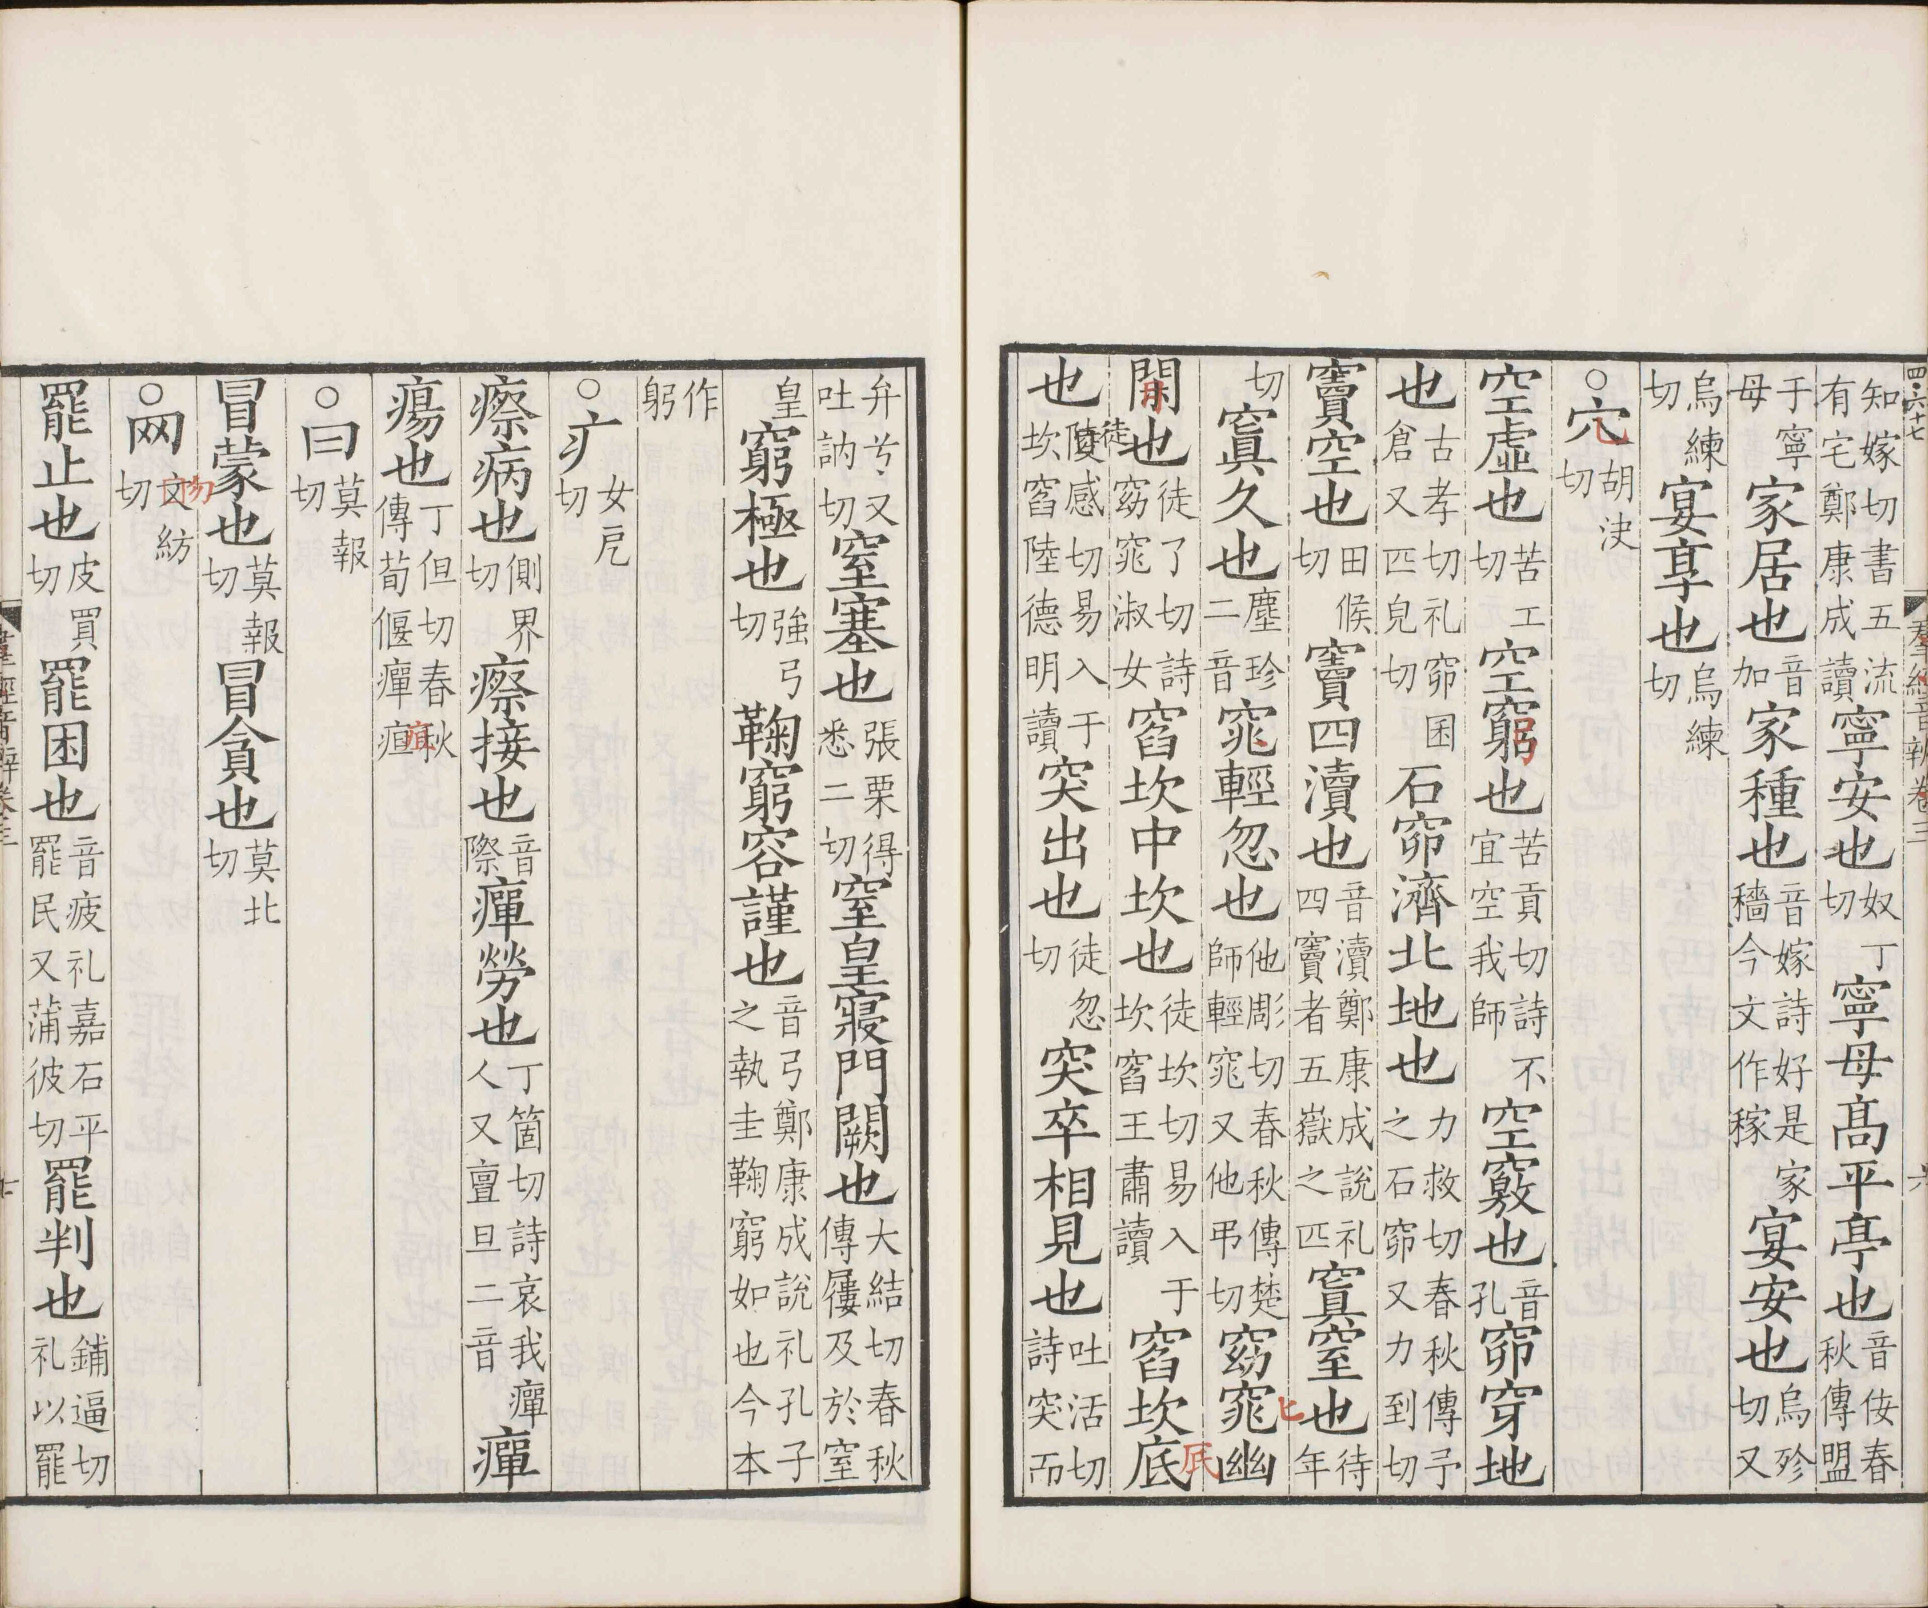 四・六十七 羣經音辨卷三 六
知嫁切書五流有宅鄭康成讀寧安也奴丁切寧母髙平亭也音佞春秋傳盟
于寧母家居也音加家種也音嫁詩好是家穡今文作稼宴安也烏殄切又
烏練切宴享也烏練切
○穴胡決切
空虛也苦工切空窮也苦貢切詩不宜空我師空竅也音孔窌穿地
也古孝切礼窌囷倉又匹皃切石窌濟北地也力救切春秋傳予之石窌又力到切
竇空也田候切竇四瀆也音瀆鄭康成說礼四竇者五嶽之匹窴窒也待年
切窴久也塵珍二音窕輕忽也他彫切春秋傳楚師輕窕又他弔切窈窕幽
閑也徒了切詩窈窕淑女窞坎中坎也徒坎切易入于坎窞王肅讀窞坎底
也陵感切易入于坎窞陸德明讀突出也徒忽切突卒相見也吐活切詩突而
弁兮又吐訥切窒塞也張栗得悉二切窒皇寢門闕也大結切春秋傳屨及於窒
皇窮極也強弓切鞠窮容謹也音弓鄭康成說礼孔子之執圭鞠窮如也今本
作躬
○疒女戹切
瘵病也側界切瘵接也音際癉勞也丁箇切詩哀我癉人又亶旦二音癉
瘍也丁但切春秋傳荀偃癉疽
○冃莫報切
冒蒙也莫報切冒貪也莫北切
○网文紡切
罷止也皮買切罷困也音疲礼嘉石平罷民又蒲彼切罷判也鋪逼切礼以罷
羣經音辨卷三 七